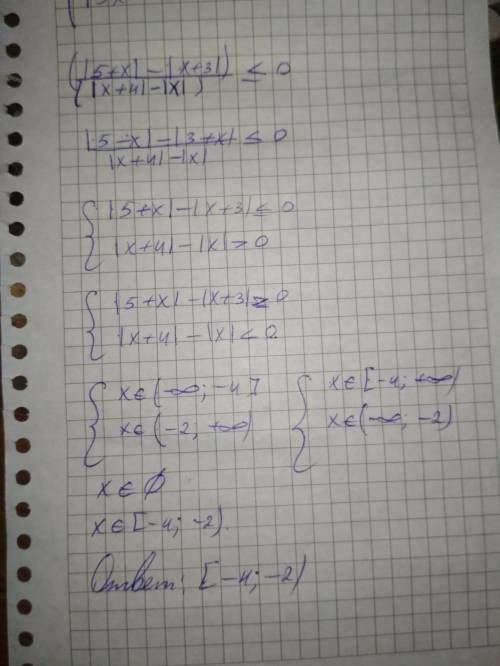 (|5+x|-|x+3|)/(|x+4|-|x|) ≤ 0
|5-x|-|3+x|/|x+4|-|x| ≤ 0
{ |5+x|-|x+3| ≤ 0
|x+4|-|x| > 0
{ |5+x|-|x+3| ≥ 0
|x+4|-|x| < 0
{ x∈(-∞; -4]
x∈(-2, +∞)
{ x∈[-4; +∞)
x∈(-∞; -2)
x∈ ∅
x∈[-4; -2).
Ответ: [-4; -2)